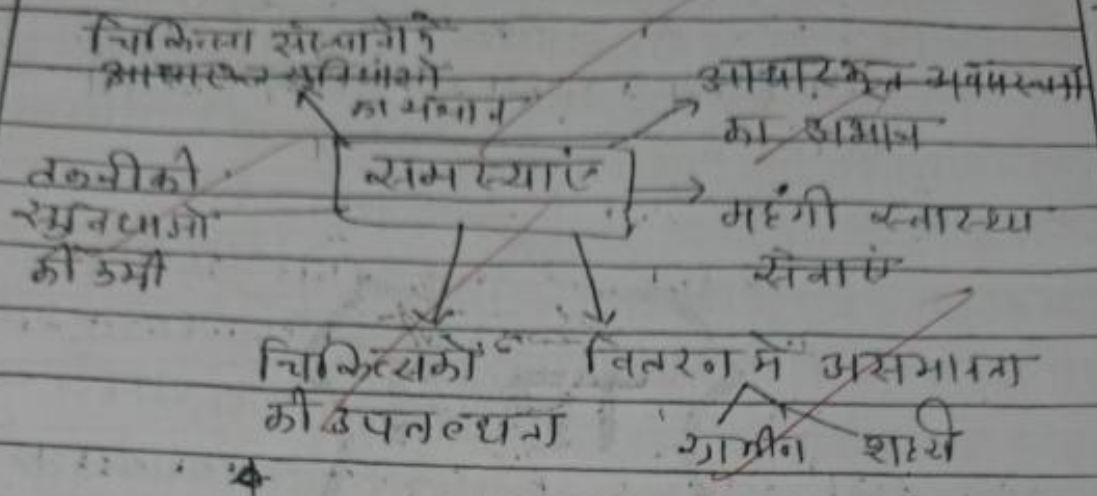 चिकित्सा संस्थानों में
आधारभूत सुविधाओं
का अभाव
आधारभूत अवसंरचना
का अभाव
समस्याएं
तकनीकी
सुविधाओं
की कमी
महंगी स्वास्थ्य
सेवाएं
चिकित्सकों
की उपलब्धता
वितरन में असमानता
ग्रामीन शहरी